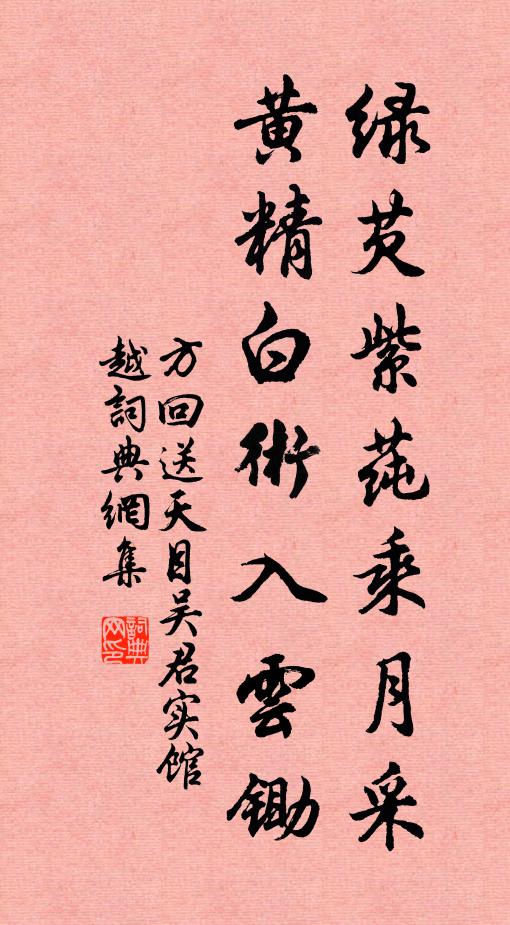 绿芡紫莼乘月采
黄精白術入雲鋤
方回送天目吴君实馆
越詞典網集
詞典网印